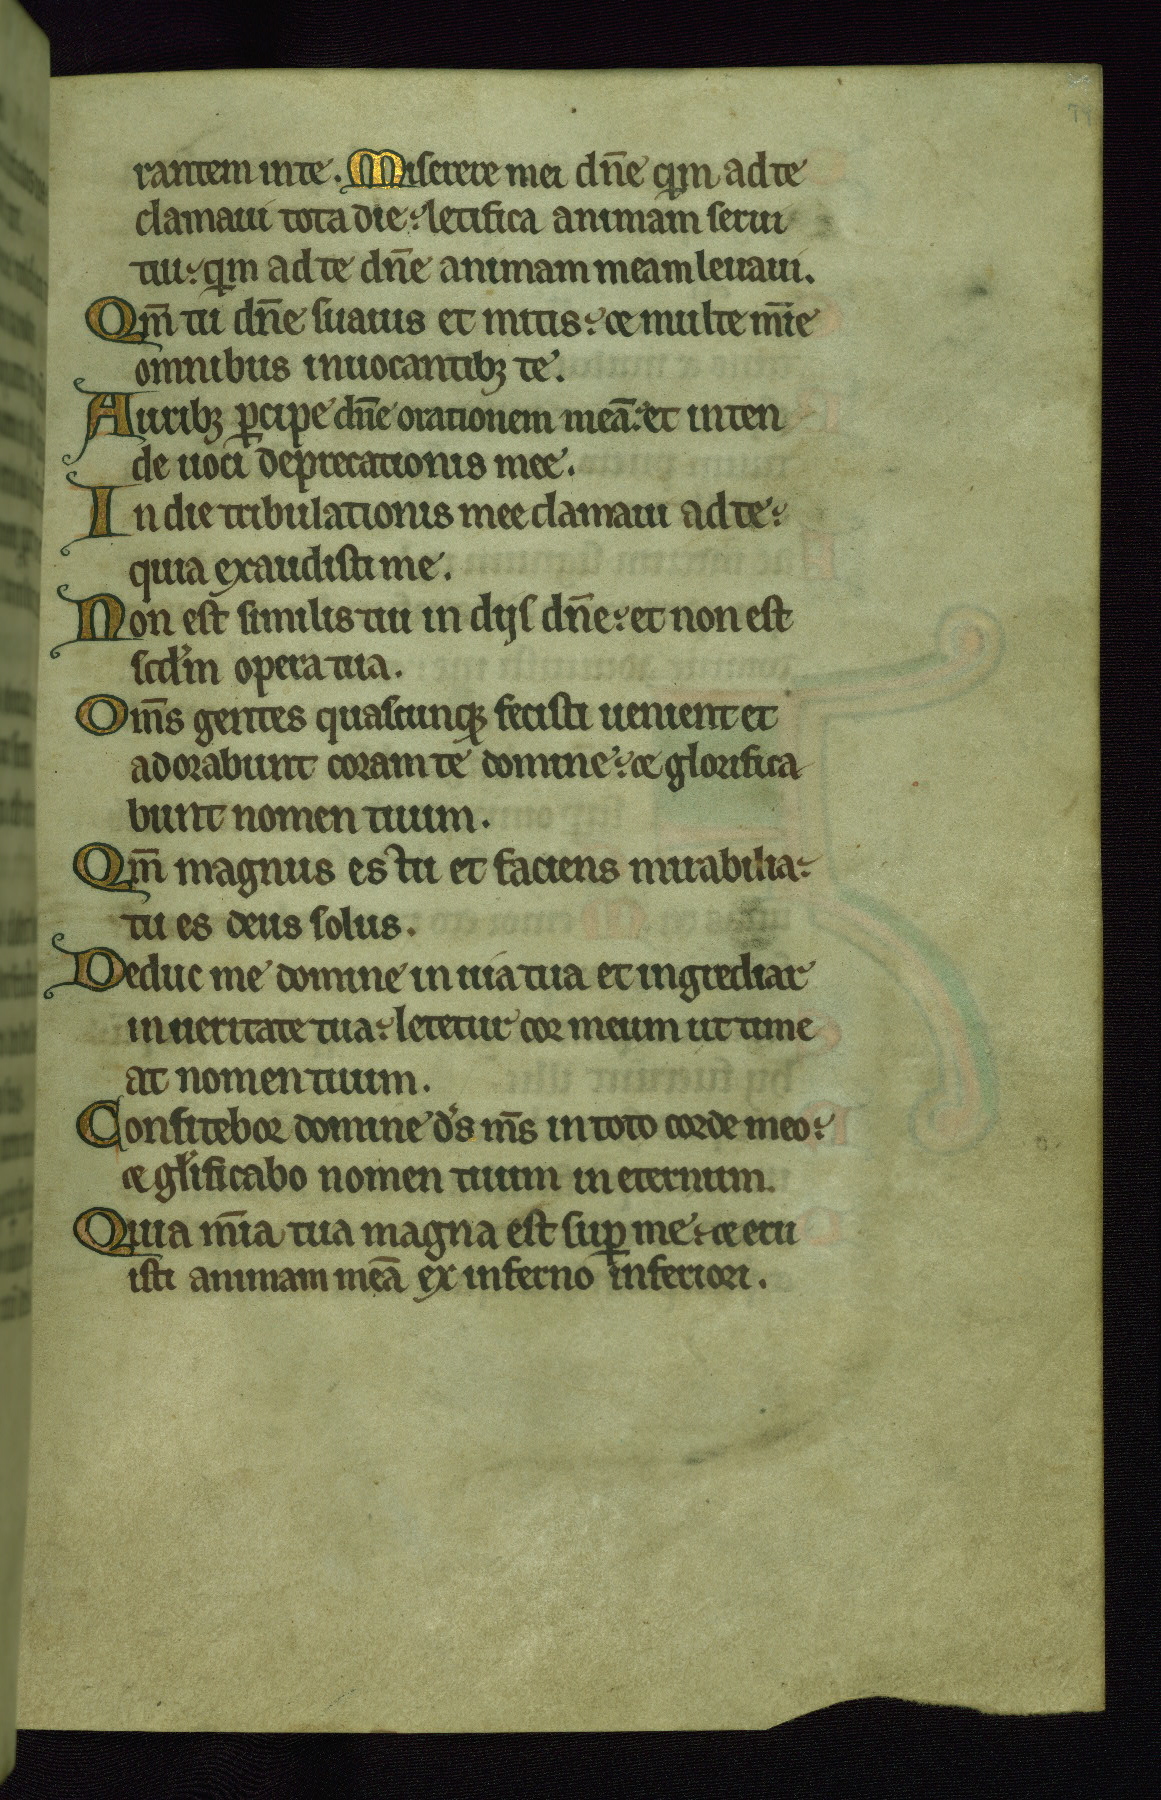 rantem in te. Miserere mei dn̄e qm̄ ad te
clamaui tota die: letifica animam serui
tui: qm̄ ad te dn̄e animam meam leuaui.
Qm̄ tu dn̄e suauis et mitis: et multe mīe
omnibus inuocantibꝫ te.
Auribꝫ ꝑcipe dn̄e orationem meā: et inten
de uoci deprecationis mee.
In die tribulationis mee clamaui ad te:
quia exaudisti me.
Non est similis tui in dijs dn̄e: et non est
scd̓m opera tua.
Om̄s gentes quascunqꝫ fecisti uenient et
adorabunt coram te domine: et glorifica
bunt nomen tuum.
Qm̄ magnus es tu et faciens mirabilia:
tu es deus solus.
Deduc me domine in uia tua et ingrediar
in ueritate tua: letetur cor meum ut time
at nomen tuum.
Confitebor domine d̓s m̄s in toto corde meo:
et gl̓ificabo nomen tuum in eternum.
Quia mīa tua magna est suꝑ me: et eru
isti animam meā ex inferno inferiori.